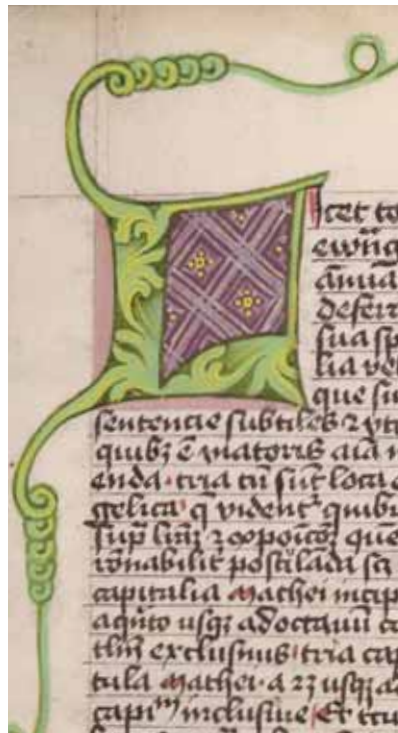 Licet to
ewng
annua
deferr
sua sp
lia vel
que su
sentencie subtiles ⁊
quibꝫ ē viatoris aīa
enda · tria tn̄ sūt loca
gelica q̄ vident᷑ quibu
sup̄ que
rōnabilit᷑ postilāda
capitalia Mathei incip
a qīto usqꝫ ad octauū
tlm̄ exclusiuus tria cap
tula Mathei · a 23 usqꝫ ad
capiᵐ inclusiue Et